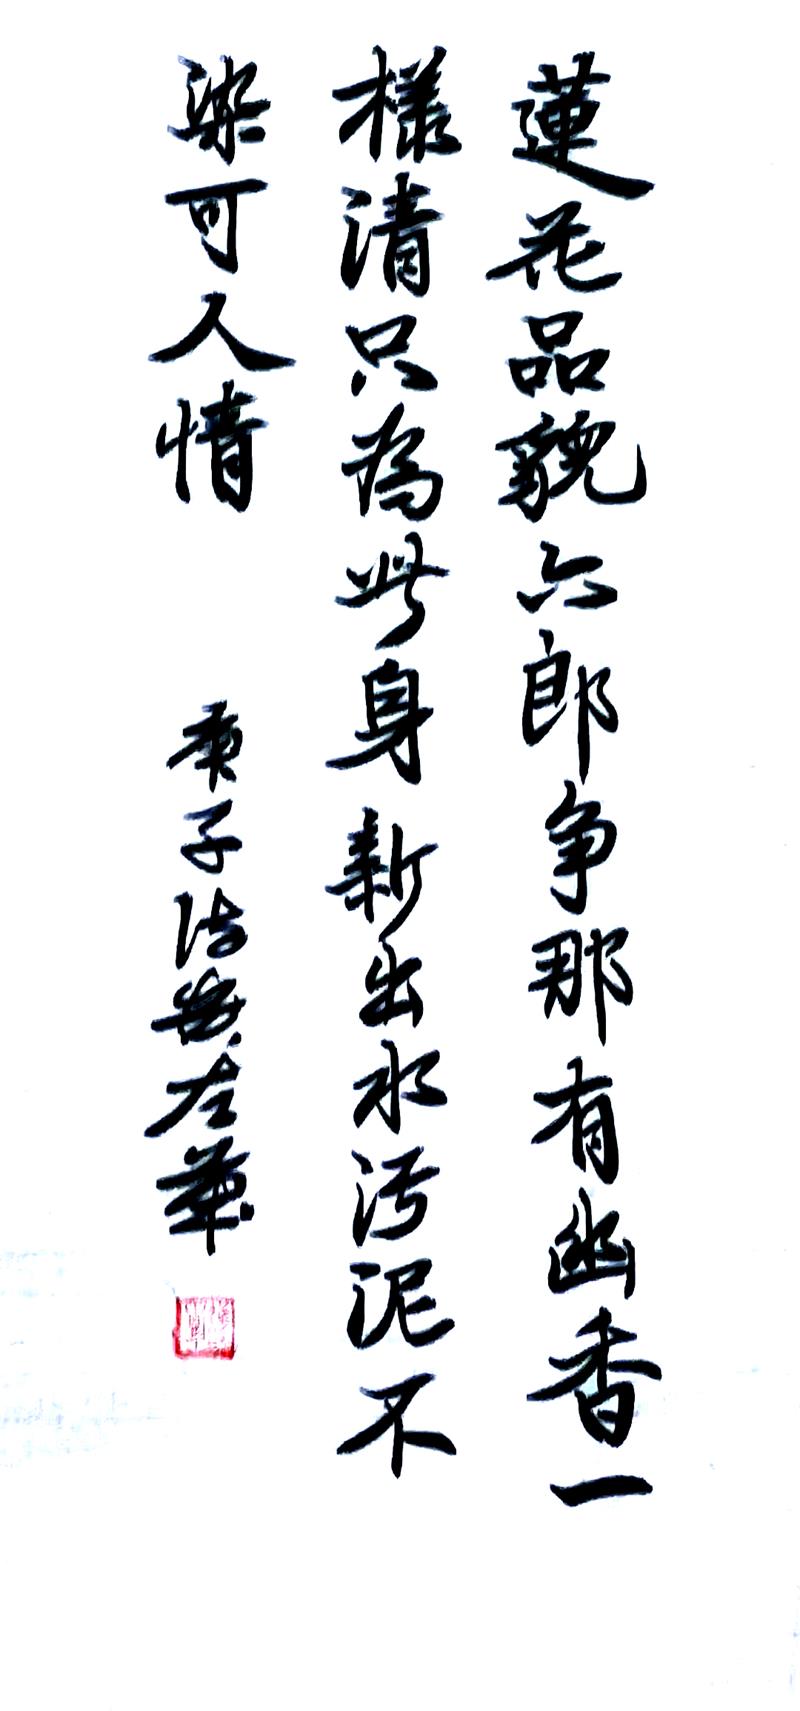 蓮花品貌六郎争那有幽香一
樣清只為此身新出水污泥不
染可人情
庚子 左華